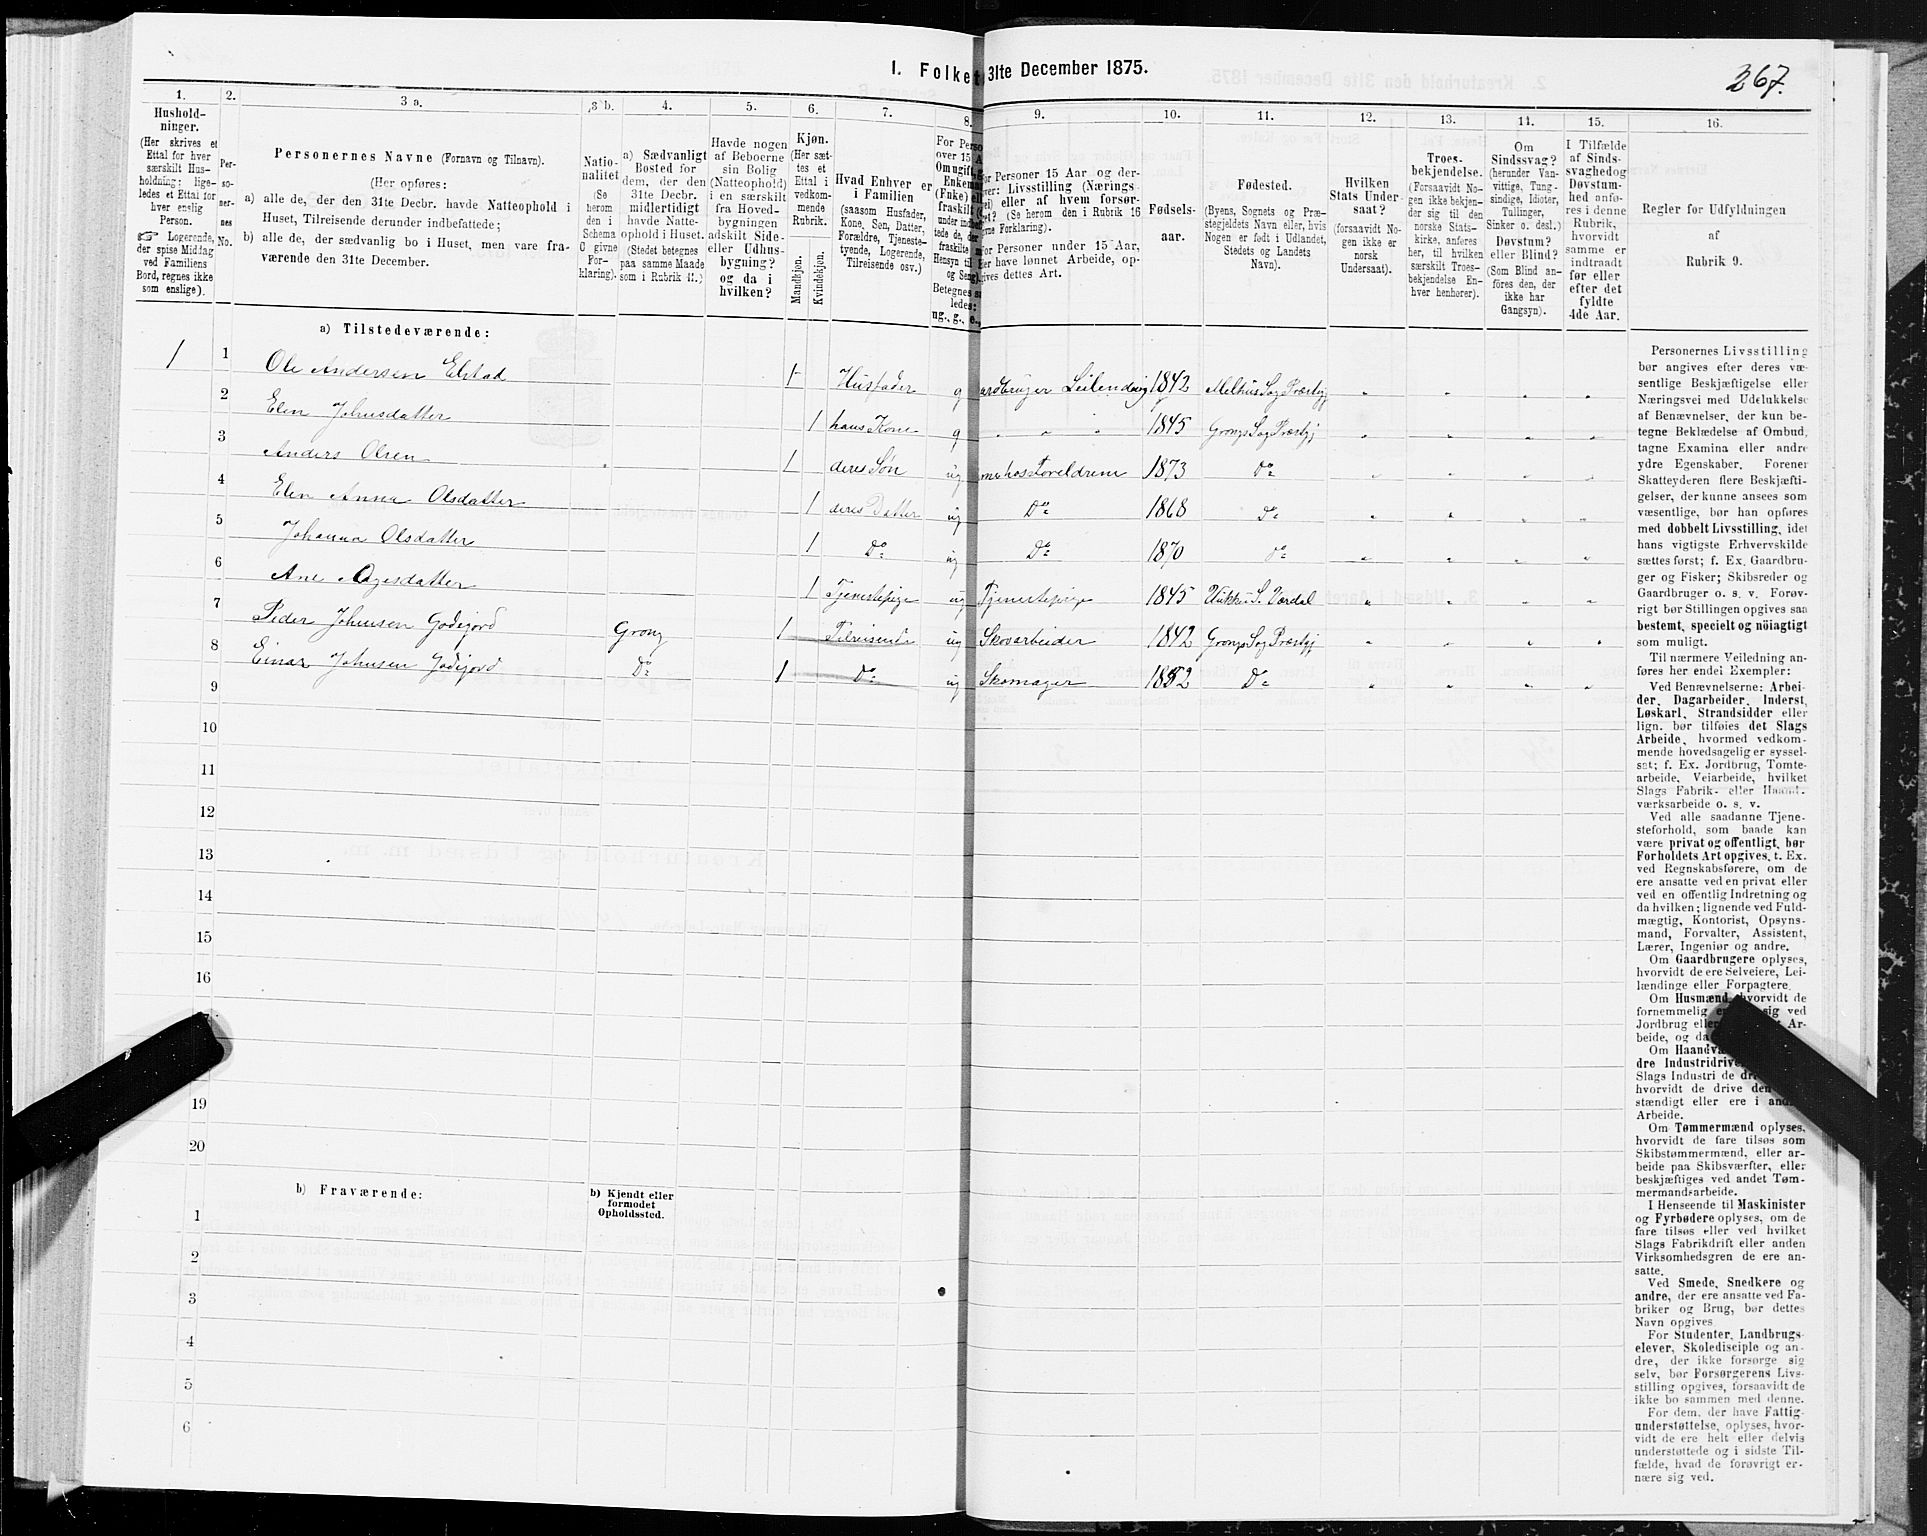 1. Folket 31te December 1875.
267.
1. 2. 3 a. 3 b. 4. 5. 6. 7. 8. 9. 10. 11. 12. 13. 14. 15. 16.
Hushold-
ninger.
(Her skrives et
Ettal for hver
særskilt Hus-
holdning; lige-
ledes et Ettal for
hver enslig
Person.
☞ Logerende,
der spise Middag
ved Familiens
Bord, regnes ikke
som enslige).
Per-
so-
ner-
nes
No.
Personernes Navne (Fornavn og Tilnavn).
(Her opføres:
a) alle de, der den 31te Decbr. havde Natteophold i
Huset, Tilreisende derunder indbefattede;
b) alle de, der sædvanlig bo i Huset, men vare fra-
værende den 31te December.
Natio-
nalitet
(Se
herom
den i
Schema
O givne
For-
klaring).
a) Sædvanligt
Bosted for
dem, der den
31te Decbr.
midlertidigt
havde Natte-
ophold i Huset.
(Stedet betegnes
paa samme Maade
som i Rubrik 11.)
Havde nogen
af Beboerne
sin Bolig
(Natteophold)
i en særskilt
fra Hoved-
bygningen
adskilt Side-
eller Udhus-
bygning?
og da i
hvilken?
Kjøn.
(Her sæt-
tes et
Ettal i
vedkom-
mende
Rubrik.
Mandkjøn.
Kvindekjøn.
Hvad Enhver er
i Familien
(saasom Husfader,
Kone, Søn, Datter,
Forældre, Tjeneste-
tyende, Logerende,
Tilreisende osv.)
For Perso
over 15 A
Om ugift,
Enkeman
(Fnke) el
fraskilt
under indbe
tede de, de
fraskilte
Hensyn til
og Seng).
Betegnes s
ledes:
ug., g., e.,
For Personer 15 Aar og der-
over: Livsstilling (Nærings
vei) eller af hvem forsør-
get? (Se herom den i Rubrik 16
givne Forklaring).
For Personer under 15 Aar,
der have lønnet Arbeide, op-
gives dettes Art.
Fødsels-
aar.
Fødested.
(Byens, Sognets og Præ-
stegjeldets Navn eller, hvis
Nogen er født i Udlandet,
Stedets og Landets
Navn).
Hvilken
Stats Under-
saat?
(forsaavidt No-
gen ikke er
norsk
Undersaat).
Troes-
bekjendelse.
(Forsaavidt No-
gen ikke bekjen-
der sig til den
norske Stats-
kirke, anføres
her, til hvilken
særskilt Troes-
bekjendelse En-
hver henhører).
Om
Sindssvag?
(herunder Van-
vittige, Tung-
sindige, Idioter,
Tullinger,
Sinker o. desl.)
Døvstum?
eller Blind?
(Som Blind an-
føres den, der
ikke har
Gangsyn).
I Tilfælde
af Sinds-
svaghed og
Døvstum-
hed anfø-
res i denne
Rubrik,
hvorvidt
samme er
indtraadt
før eller
efter det
fyldte
4de Aar.
Regler for Udfyldningen
af
Rubrik 9.
a) Tilstedeværende:
1 1 Ole Andersen Elstad 1 Husfader g Gaardbruger Leilending 1842 Melhus Sog Præstgj " " " "
2 Elen Johnsdatter 1 hans Kone g " " " 1845 Grongs Sog Præstgj " " " "
3 Anders Olsen 1 deres Søn ug hos Foreldrene 1873 Do " " " "
4 Elen Anna Olsdatter 1 deres Datter ug Do 1868 Do " " " "
5 Johanna Olsdatter 1 Do ug Do 1870 Do " " " "
6 Ane Aagesdatter 1 Tjenestepige ug Tjenestepige 1845 S. Værdal " " " "
7 Peder Johnsen Godejord Grong 1 Tilreisende ug Skovarbeider 1842 Grongs Sog Præstgj " " " "
8 Einar Johnsen Godejord Do 1 Do ug Skomager 1852 Do " " " "
9
10
11
12
13
14
15
16
19
20
b) Fraværende:
b) Kjendt eller
formodet
Opholdssted.
1
2
3
4
5
6
Personernes Livsstilling
bør angives efter deres væ-
sentlige Beskjæftigelse eller
Næringsvei med Udelukkelse
af Benævnelser, der kun be-
tegne Beklædelse af Ombud,
tagne Examina eller andre
ydre Egenskaber. Forener
Skatteyderen flere Beskjæfti-
gelser, der kunne ansees som
væsentlige, bør han opføres
med dobbelt Livsstilling, idet
hans vigtigste Erhvervskilde
sættes først; f. Ex. Gaardbru-
ger og Fisker; Skibsreder og
Gaardbruger o. s. v. Forøv-
rigt bør Stillingen opgives saa
bestemt, specielt og nøiagtigt
som muligt.
Til nærmere Veiledning an-
føres her endel Exempler:
Ved Benævnelserne: Arbei-
der, Dagarbeider, Inderst,
Løskarl, Strandsidder eller
lign. bør tilføies det Slags
Arbeide, hvormed vedkom-
mende hovedsagelig er syssel-
sat; f. Ex. Jordbrug, Tomte-
arbeide, Veiarbeide, hvilket
Slags Fabrik- eller Haand-
værksarbeide o. s. v.
Ved alle saadanne Tjene-
steforhold, som baade kan
være privat og offentligt, bør
Forholdets Art opgives, t. Ex.
ved Regnskabsførere, om de
ere ansatte ved en privat eller
ved en offentlig Indretning og
da hvilken; lignende ved Fuld-
mægtig, Kontorist, Opsyns-
mand, Forvalter, Assistent,
Lærer, Ingeniør og andre.
Om Gaardbrugere oplyses,
hvorvidt de ere Selveiere, Lei-
lændinge eller Forpagtere.
Om Husmænd, hvorvidt de
fornemmelig er sig ved
Jordbrug eller t Ar-
beide, og da
Om Haandv
dre Industridrive
Slags Industri de dri
hvorvidt de drive den
stændigt eller ere i and
Arbeide.
Om Tømmermænd oplyses,
hvorvidt de fare tilsøs som
Skibstømmermænd, eller ar-
beide paa Skibsværfter, eller
beskjæftiges ved andet Tøm-
mermandsarbeide.
I Henseende til Maskinister
og Fyrbødere oplyses, om de
fare tilsøs eller ved hvilket
Slags Fabrikdrift eller anden
Virksomhedsgren de ere an-
satte.
Ved Smede, Snedkere og
andre, der ere ansatte ved Fa-
briker og Brug, bør dettes
Navn opgives
For Studenter, Landbrugs-
elever, Skoledisciple og an-
dre, der ikke forsørge sig
selv, bør Forsørgerens Livs-
stilling opgives, forsaavidt de
ikke bo sammen med denne.
For dem, der have Fattig-
understøttelse, oplyses, hvor-
vidt de ere helt eller delvis
understøttede og i sidste Til-
fælde, hvad de forøvrigt er-
nære sig ved.